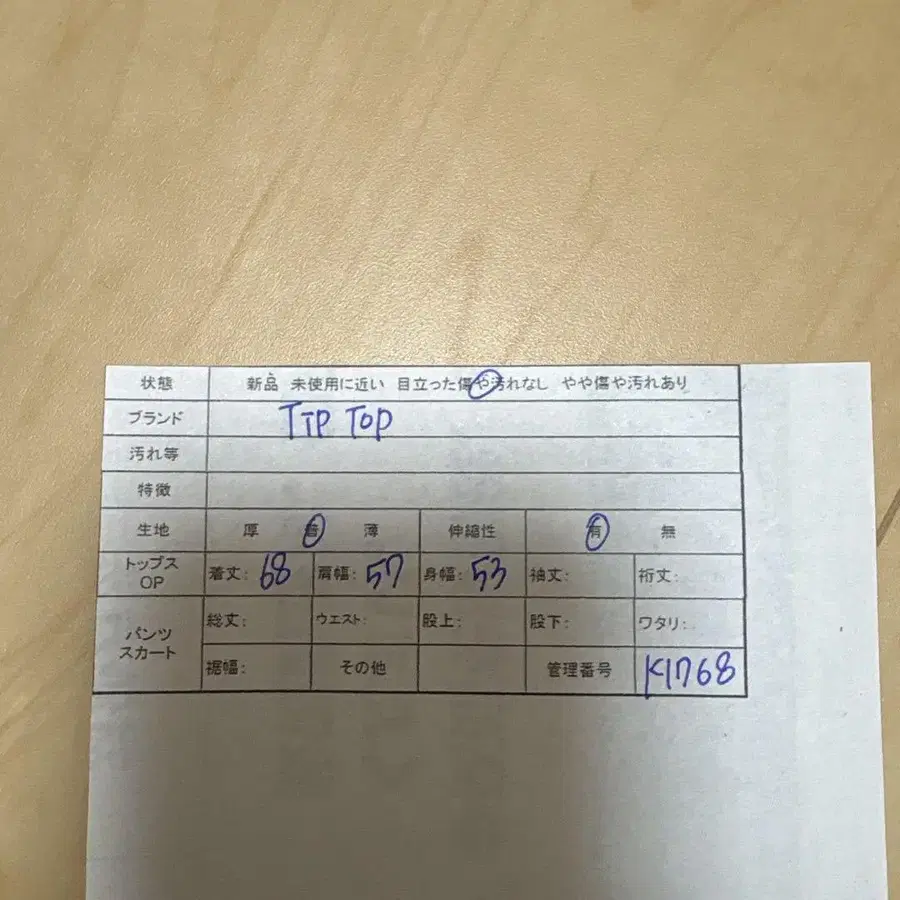 状態 新品 未使用に近い 目立った傷や汚れなし やや傷や汚れあり
ブランド TIP TOP
汚れ等
特徴
生地 厚 普 薄 伸縮性 有 無
トップス OP 着丈: 68 肩幅: 57 身幅: 53 袖丈: 裄丈:
パンツ スカート 総丈: ウエスト: 股上: 股下: ワタリ:
裾幅: その他 管理番号 K1768